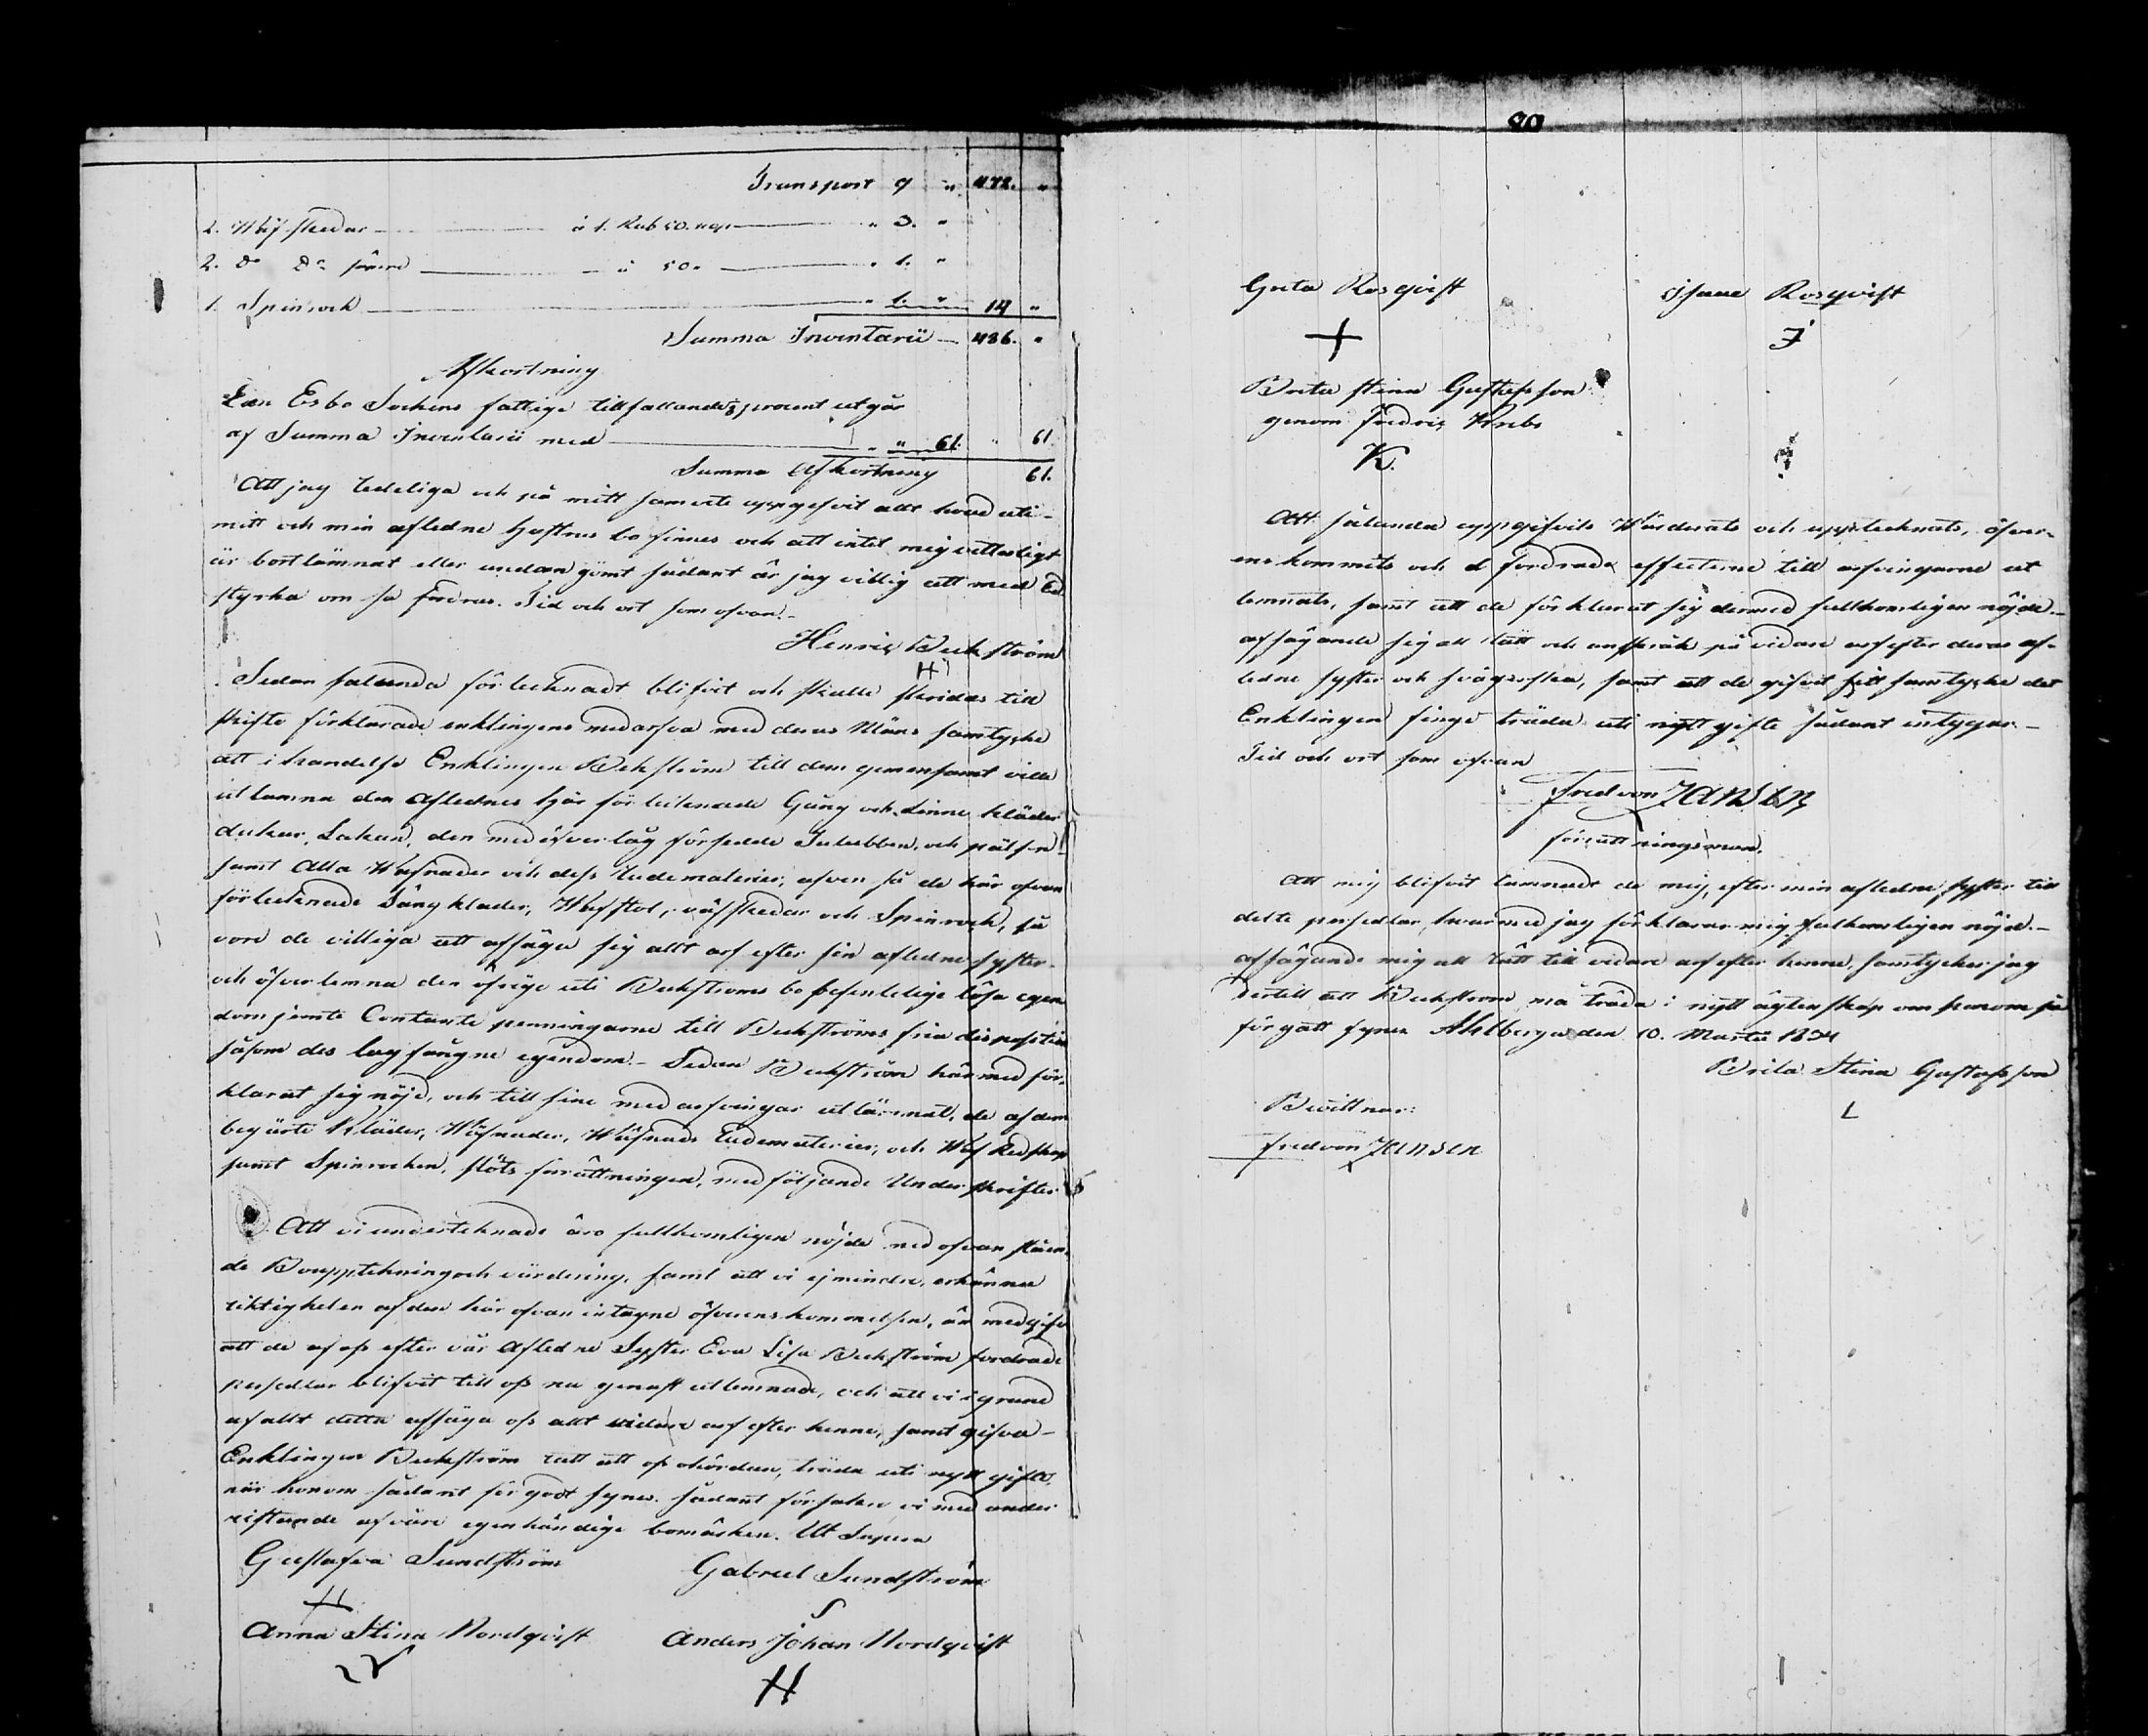 Transport 9 " 472. "
2. Wäf skedar à 1. Rub 50. kop " 3. "
2. Do Do sämre à 50. " 1. "
1. Spinrock " 1. " 14 "
Summa Inventarii 486. "
Afkortning
Esbo Sockens fattige tillfallande procent utgår
af Summa Inventarii med " 61. " 61.
Summa Afkortning 61.
Att jag redeliga och på mitt samvete uppgifvit allt hvad uti
mitt och min afledne Hustrus bo finnes och att intet mig vetterligt
är bortlämnat eller undangömt sådant är jag villig att med Ed
styrka om så fordras. Tid och ort som ofvan.
Henric Beckström
H
Sedan salunda förtecknadt blifvit och skulle skridas till
skifte förklarade enklingens medarfva med deras Mäns samtycke
att i händelse Enklingen Bekström till dem gemensamt ville
utlämna den Aflednes här förtecknade Gång och Linne kläder
dukar, Lakan, den med öfverlåg försedde och pälsen
samt Alla Wäfnader och dess ludematerier, äfven så de här ofvan
förtecknade Sängkläder, Wäfstol, väfskedar och Spinrock, så
vore de villiga att afsäga sig allt arf efter sin afledne syster
och öfverlemna den öfrige uti Beckströms bo befintelige lösa egen
dom jemte Contante penningarne till Beckströms fria disposition
såsom des lagfångne egendom. Sedan Beckström här med för,
klarat sig nöjd, och till sine med arfvingar utlämnat, de af dem
begärte Kläder, Wäfnader, Wäfnads ludematerier, och Wäf Redskap
samt Spinrocken, slöts förrättningen, med följande Underskrifter
Att vi undertecknade äro fullkomligen nöjde med ofvan stäen,
de Bouppteckning och värdering, samt att vi ej mindre, erkänna
riktigheten af den här ofvan intagne öfverenskommelsen, än medgifva
att de af oss efter vår Afledne Syster Eva Lisa Beckström fordrade
persedlar blifvit till oss nu genast utlemnade, och att vi i grund
af allt detta afsäga oss allt vidare arf efter henne, samt gifva
Enklingen Beckström rätt att af oss träda uti nytt gifte,
när honom sådant för godt synes. Sådant försäkra vi med under
ritande af våre egenhändige bomärken. Ut Supra
Gustafva Sundström Gabriel Sundström
Anna Stina Nordqvist Anders Johan Nordqvist
H
Greta Rosqvist Isaac Rosqvist
Brita Stina Gustafsson
genom Fredric Krebs
K.
Att sålunda uppgifvits Wärderats och upptecknats, öfver-
enskommits och de fordrade effecterne till arfvingarne ut
lemnats, samt att de förklarat sig dermed fullkomligen nöjde
afsägande sig all rätt och anspråk på vidare arf efter deras af-
ledne syster och svägerska, samt att de gifvit sitt samtycke det
Enklingen finge träda uti nytt gifte sådant intygar.
Tid och ort som ofvan
Fred von Jansen
förrättningsman.
Att mig blifvit lämnade de mig, efter min afledne syster till
delte persedlar, hvarmed jag förklarar mig fullkomligen nöjd.
afsägande mig all rätt till vidare arf efter henne, samtycker jag
dertill att Beckström må träda i nytt ägtenskap om honom så
för gått synes Ahlberga den 10. Martii 1834
Brita Stina Gustafsson
Bewittnar:
Fred von Jansen